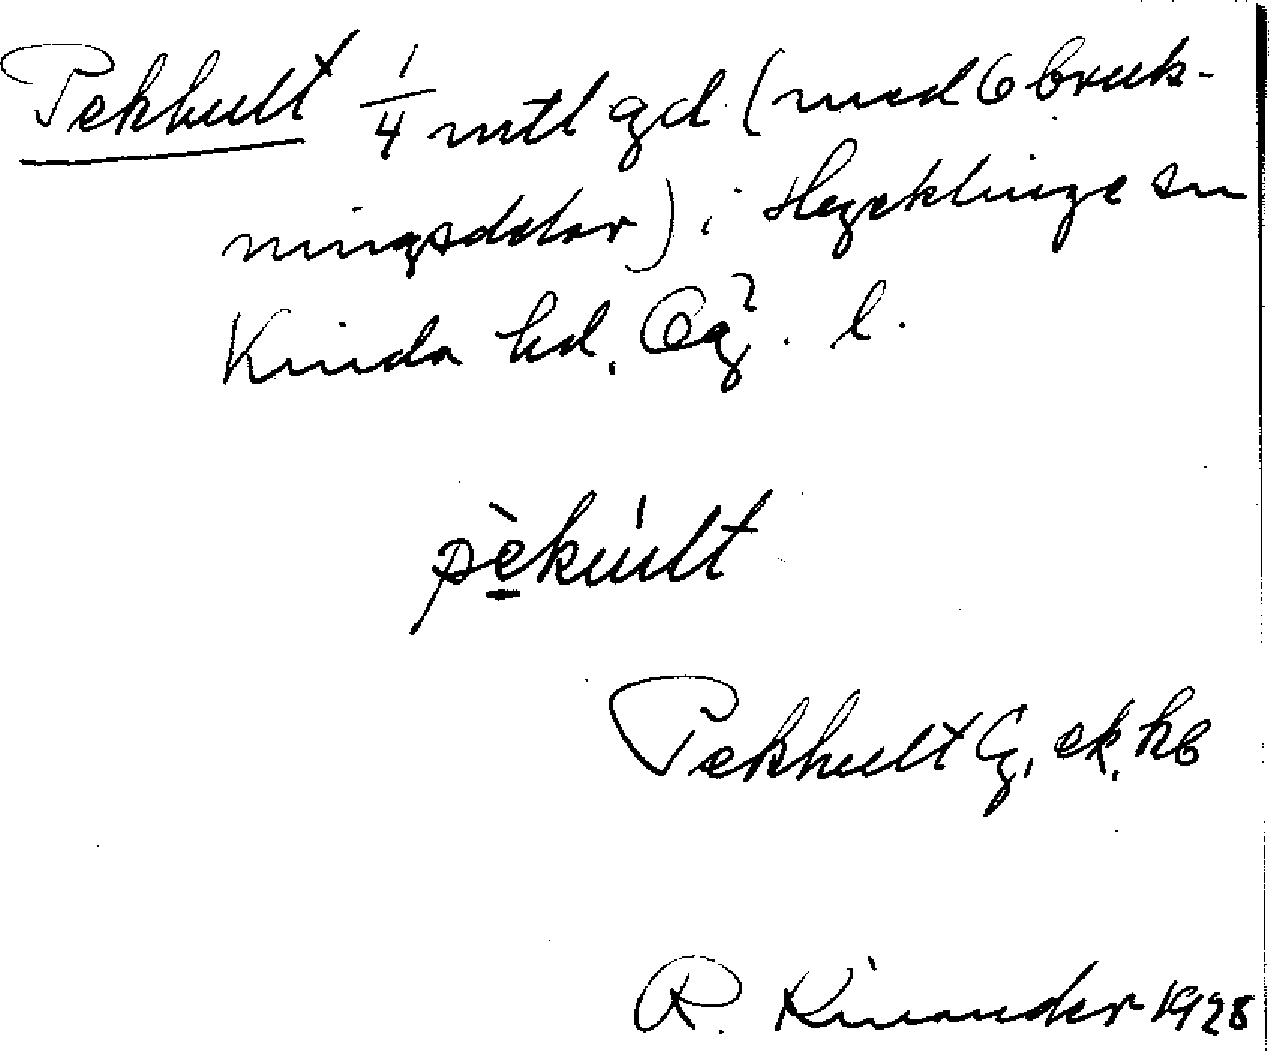 Pekhult 1/4 mtl gd. (med 6 bruk-
ningsdelar) i Hycklinge sn
Kinda hd. Ög. l.
pèkúlt
Pekhult G, ek. kb
R. Kinander 1928